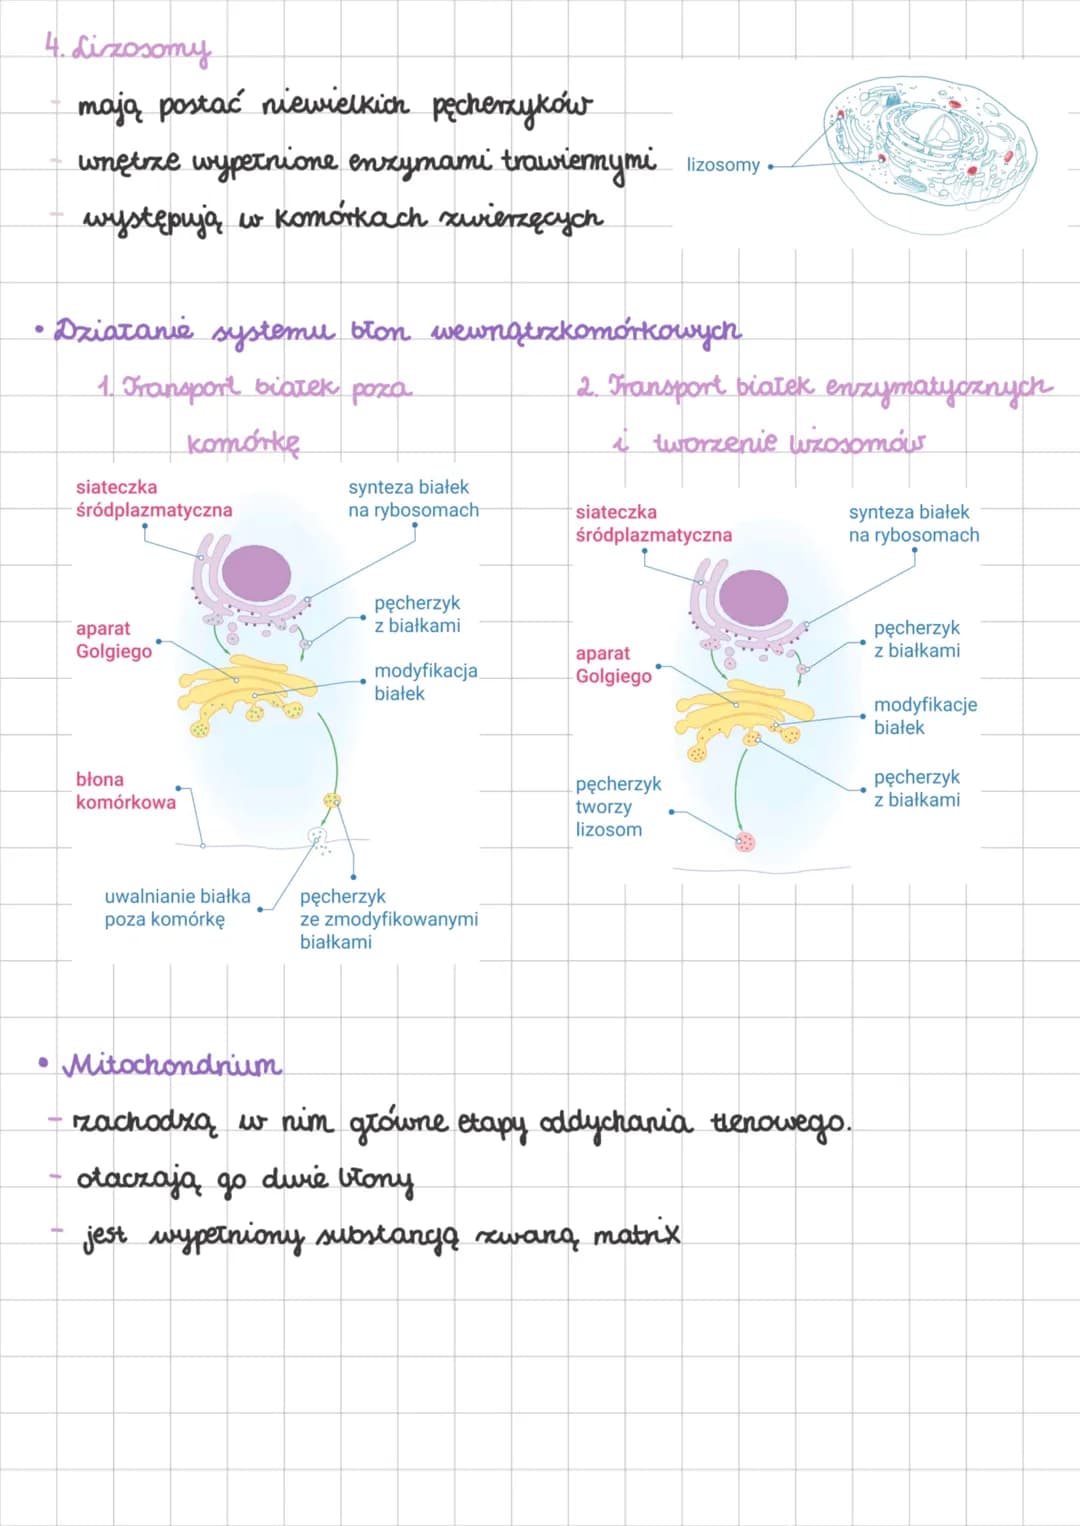 4. Lizosomy
- mają postać niewielkich pęcherzyków
- wnętrze wypełnione enzymami trawiennymi
- występują w komórkach zwierzęcych
lizosomy
• Działanie systemu błon wewnątrzkomórkowych
1. Transport białek poza
komórkę
siateczka
śródplazmatyczna
synteza białek
na rybosomach
pęcherzyk
z białkami
aparat
Golgiego
modyfikacja
białek
błona
komórkowa
uwalnianie białka
poza komórkę
pęcherzyk
ze zmodyfikowanymi
białkami
2. Transport białek enzymatycznych
i tworzenie lizosomów
siateczka
śródplazmatyczna
synteza białek
na rybosomach
pęcherzyk
z białkami
aparat
Golgiego
modyfikacje
białek
pęcherzyk
z białkami
pęcherzyk
tworzy
lizosom
• Mitochondrium
- zachodzą w nim główne etapy oddychania tlenowego.
- otaczają go dwie błony
- jest wypełniony substancją zwaną matrix